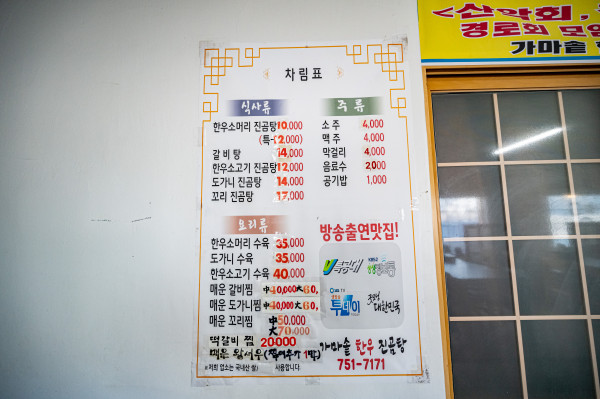 <산악회,
경로회 모임
가마솥
차림표
식사류
한우소머리 진곰탕 10,000
(특-12,000)
갈비탕 14,000
한우소고기 진곰탕 12,000
도가니 진곰탕 14,000
꼬리 진곰탕 17,000
주류
소주 4,000
맥주 4,000
막걸리 4,000
음료수 2,000
공기밥 1,000
요리류
한우소머리 수육 35,000
도가니 수육 35,000
한우소고기 수육 40,000
매운 갈비찜 中40,000大60,
매운 도가니찜 中40,000大60,
매운 꼬리찜 中50,000
大70,000
떡갈비 찜 20000
방송출연맛집!
V특공대
KBS2
생생정보통
SBS TV
투데이
대한민국
가마솥 한우 진곰탕
751-7171
*저희 업소는 국내산 쌀 사용합니다.